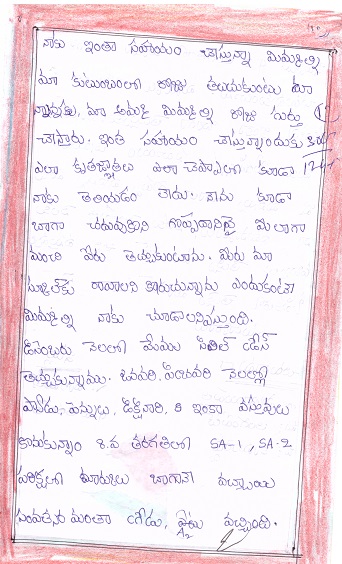 నాకు ఇంతా సహాయం చేస్తున్నా మిమ్మల్ని
మా కుటుంబంలో రోజు తలుచుకుంటు మా
నాన్నకు, మా అమ్మ మిమ్మల్ని రోజు గుర్తు
చేస్తారు. ఇంత సహాయం చేస్తున్నందుకు
ఎలా కృతజ్ఞతలు ఎలా చెప్పాలో కూడా
నాకు తెలియడం లేదు. నేను కూడా
బాగా చదువుకుని గొప్పదానినై మీలాగా
మంచి పేరు తెచ్చుకుంటాను. మీరు మా
స్కూల్‌కు రావాలని కోరుచున్నాను ఎందుకంటే
మిమ్మల్ని నాకు చూడాలనిపిస్తుంది.
డిసెంబరు నెలలో మేము సివిల్ డ్రెస్
తెచ్చుకున్నాము. జనవరి, ఫిబ్రవరి నెలల్లో
పెన్నులు, డిక్షనరీ, ఇంకా వస్తువులు
కొనుకున్నాం 8.వ తరగతిలో SA-1, SA-2
పరీక్షలో మార్కులు బాగానే వచ్చాయి
సంవత్సర మంతా గ్రేడు, వచ్చింది.
A2